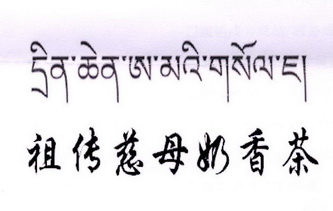 དྲིན་ཆེན་ཨ་མའི་གསོལ་ཇ།
祖传慈母奶香茶